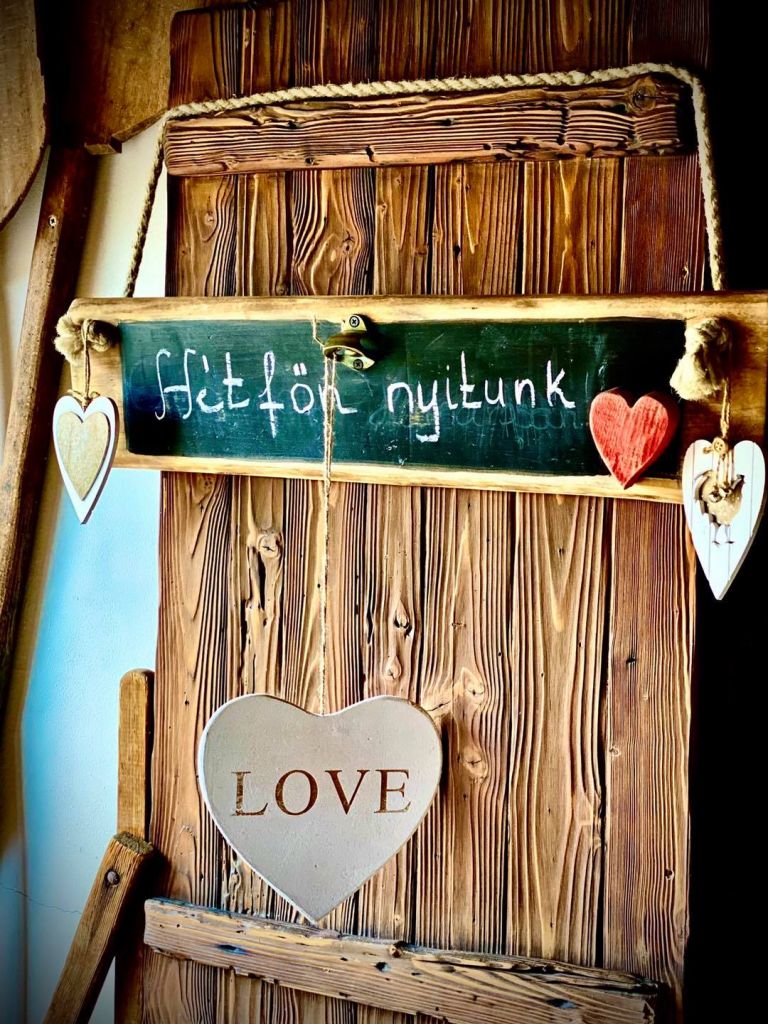 Hétfőn nyitunk
LOVE